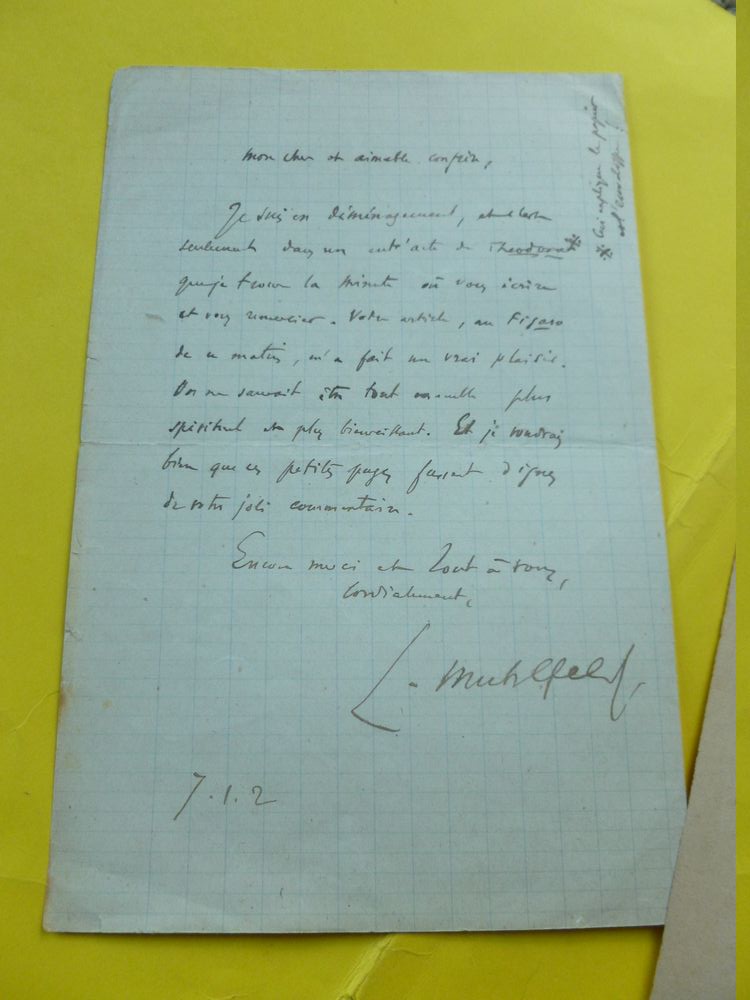 mon cher et aimable confrère,
Je suis en déménagement, et c'est
seulement dans un entr'acte de Theodora *
que je trouve la minute où vous écrire
et vous remercier. Votre article, au Figaro
de ce matin, m'a fait un vrai plaisir.
On ne saurait être tout ensemble plus
spirituel et plus bienveillant. Et je voudrais
bien que ces petites pages fussent dignes
de votre joli commentaire.
Encore merci et tout à vous,
Cordialement,
L. Muhlfeld,
7.1.2
* Ceci explique le papier
et l'enveloppe !